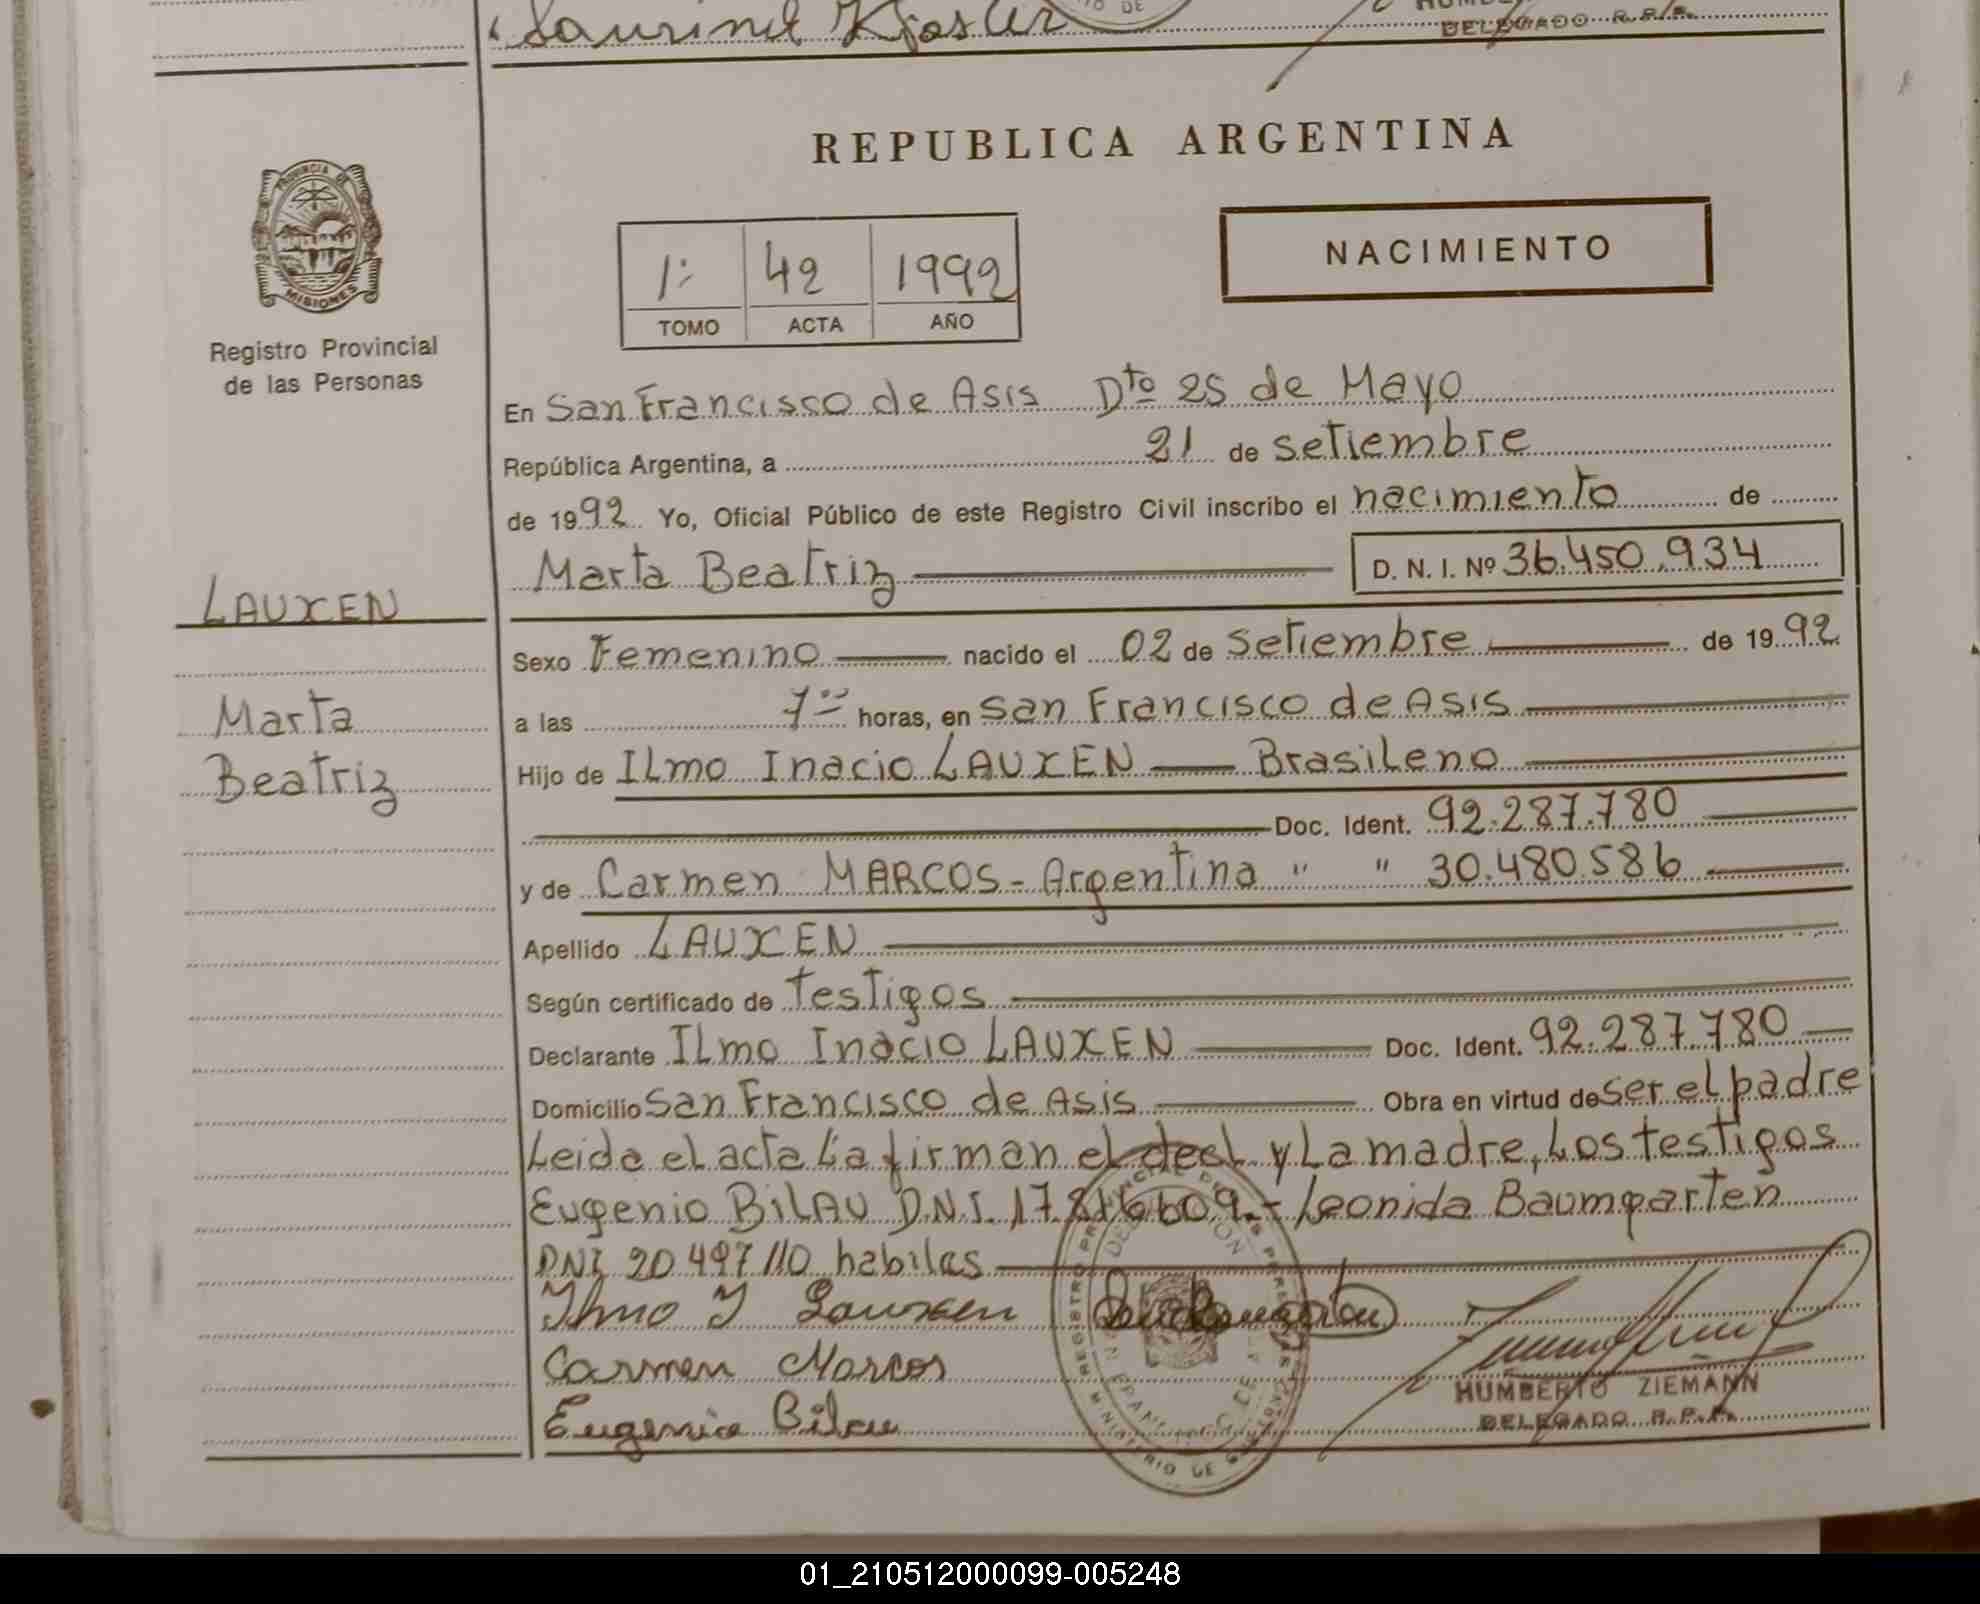 Laurinel Kjoster
DELEGADO R.P.P.
REPUBLICA ARGENTINA
PROVINCIA DE
MISIONES
Registro Provincial
de las Personas
1º 42 1992
TOMO ACTA AÑO
NACIMIENTO
En San Francisco de Asis Dto 25 de Mayo
República Argentina, a 21 de setiembre
de 1992 Yo, Oficial Público de este Registro Civil inscribo el nacimiento de
Marta Beatriz D. N. I. Nº 36.450.934
LAUXEN
Marta
Beatriz
Sexo Femenino nacido el 02 de setiembre de 1992
a las 7 00 horas, en San Francisco de Asis
Hijo de Ilmo Inacio LAUXEN Brasileno
Doc. Ident. 92.287.780
y de Carmen MARCOS - Argentina " " 30.480.586
Apellido LAUXEN
Según certificado de testigos
Declarante Ilmo Inacio LAUXEN Doc. Ident. 92.287.780
Domicilio San Francisco de Asis Obra en virtud de ser el padre
Leida el acta La firman el decl y La madre, Los testigos
Eugenio BILAU D.N.I. 17.816609.- Leonida Baumgarten
DNI 20 497 110 habiles
Ilmo I Lauxen
Carmen Marcos
Eugenio Bilau
HUMBERTO ZIEMANN
DELEGADO R.P.P.
01_210512000099-005248